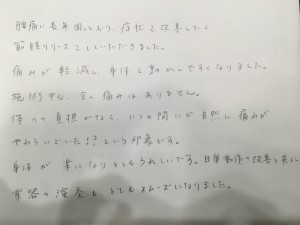 腰痛に長年困っており、症状を改善したく
筋膜リリースをしていただきました。
痛みが軽減し、身体を動かしやすくなりました。
施術中も、全く痛みはありません。
体への負担がなく、いつの間にか自然に痛みが
やわらいでいた!?という印象です。
身体が楽になりとてもうれしいです。日常動作の改善と共に
楽器の演奏も、とてもスムーズになりました。